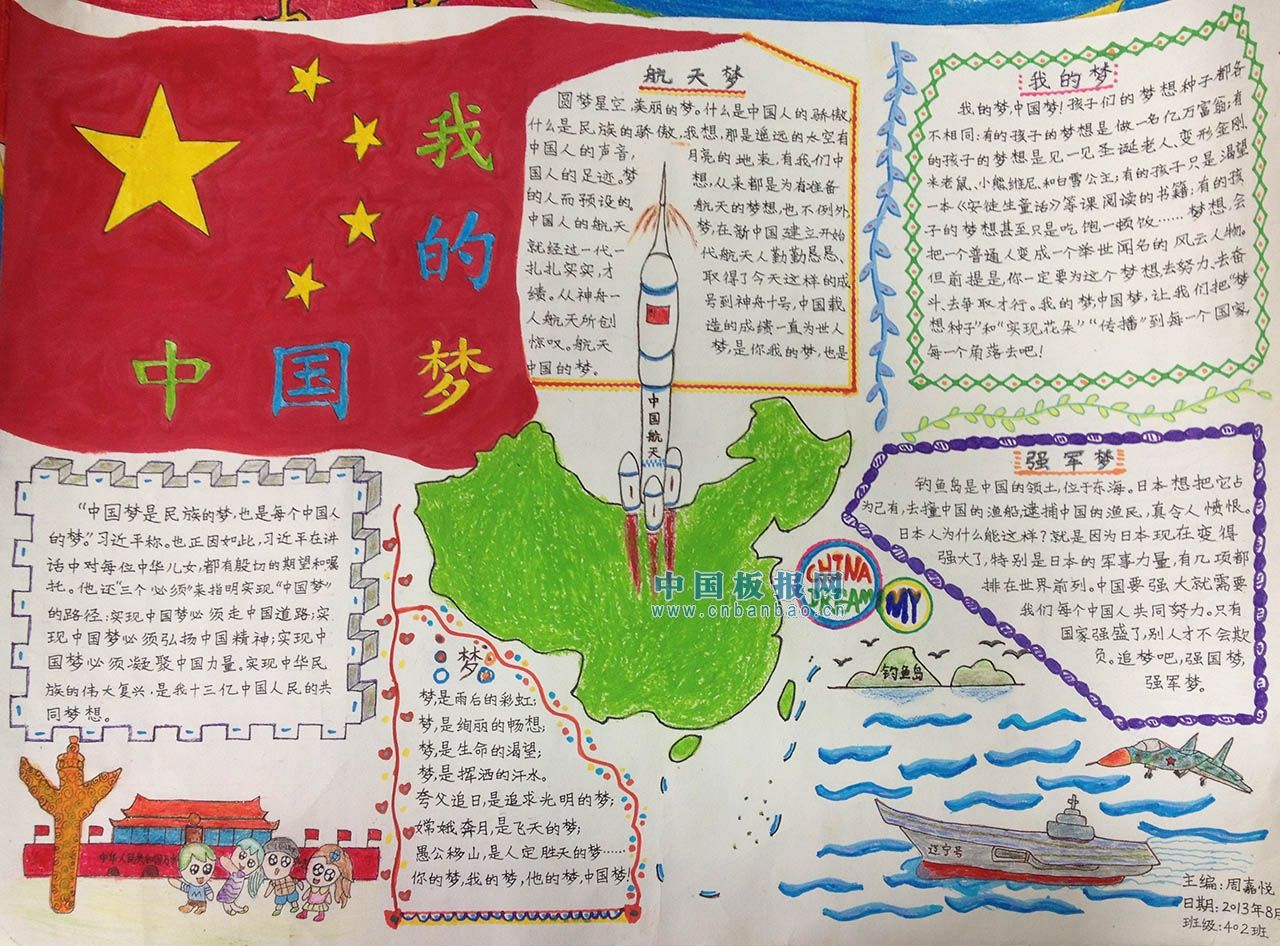 我的
中国梦
航天梦
圆梦星空,美丽的梦。什么是中国人的骄傲,
什么是民族的骄傲,我想,那是遥远的太空有
中国人的声音, 月亮的地表,有我们中
国人的足迹。梦 想,从来都是为有准备
的人而预设的。 航天的梦想,也不例外
中国人的航天 梦,在新中国建立开始
就经过一代一 代航天人勤勤恳恳、
扎扎实实,才 取得了今天这样的成
绩。从神舟一 号到神舟十号,中国载
人航天所创 造的成绩一直为世人
惊叹。航天 梦,是你我的梦,也是
中国的梦。
我的梦
我的梦,中国梦!孩子们的梦想种子都各
不相同:有的孩子的梦想是做一名亿万富翁;有
的孩子的梦想是见一见圣诞老人、变形金刚、
米老鼠、小熊维尼、和白雪公主;有的孩子只是渴望
一本《安徒生童话》等课阅读的书籍;有的孩
子的梦想甚至只是吃饱一顿饭……梦想,会
把一个普通人变成一个举世闻名的风云人物。
但前提是,你一定要为这个梦想去努力、去奋
斗、去争取才行。我的梦,中国梦,让我们把“梦
想种子”和“实现花朵”“传播”到每一个国家,
每一个角落去吧!
中国航天
“中国梦是民族的梦,也是每个中国人
的梦。”习近平称。也正因如此,习近平在讲
话中对每位中华儿女,都有殷切的期望和嘱
托。他还“三个必须”来指明实现“中国梦”
的路径:实现中国梦必须走中国道路;实
现中国梦必须弘扬中国精神;实现中
国梦必须凝聚中国力量。实现中华民
族的伟大复兴,是我十三亿中国人民的共
同梦想。
强军梦
钓鱼岛是中国的领土,位于东海。日本想把它占
为己有,去撞中国的渔船,逮捕中国的渔民,真令人愤恨。
日本人为什么能这样?就是因为日本现在变得
强大了,特别是日本的军事力量,有几项都
排在世界前列。中国要强大就需要
我们每个中国人共同努力。只有
国家强盛了,别人才不会欺
负。追梦吧,强国梦,
强军梦。
CHINA
MY
中国板报网
www.cnbanbao.cn
钓鱼岛
梦
梦是雨后的彩虹;
梦,是绚丽的畅想;
梦,是生命的渴望;
梦,是挥洒的汗水。
夸父追日,是追求光明的梦;
嫦娥奔月,是飞天的梦;
愚公移山,是人定胜天的梦……
你的梦,我的梦,他的梦,中国梦!
中华人民共和国万
辽宁号
主编:周嘉悦
日期:2013年8月
班级:402班